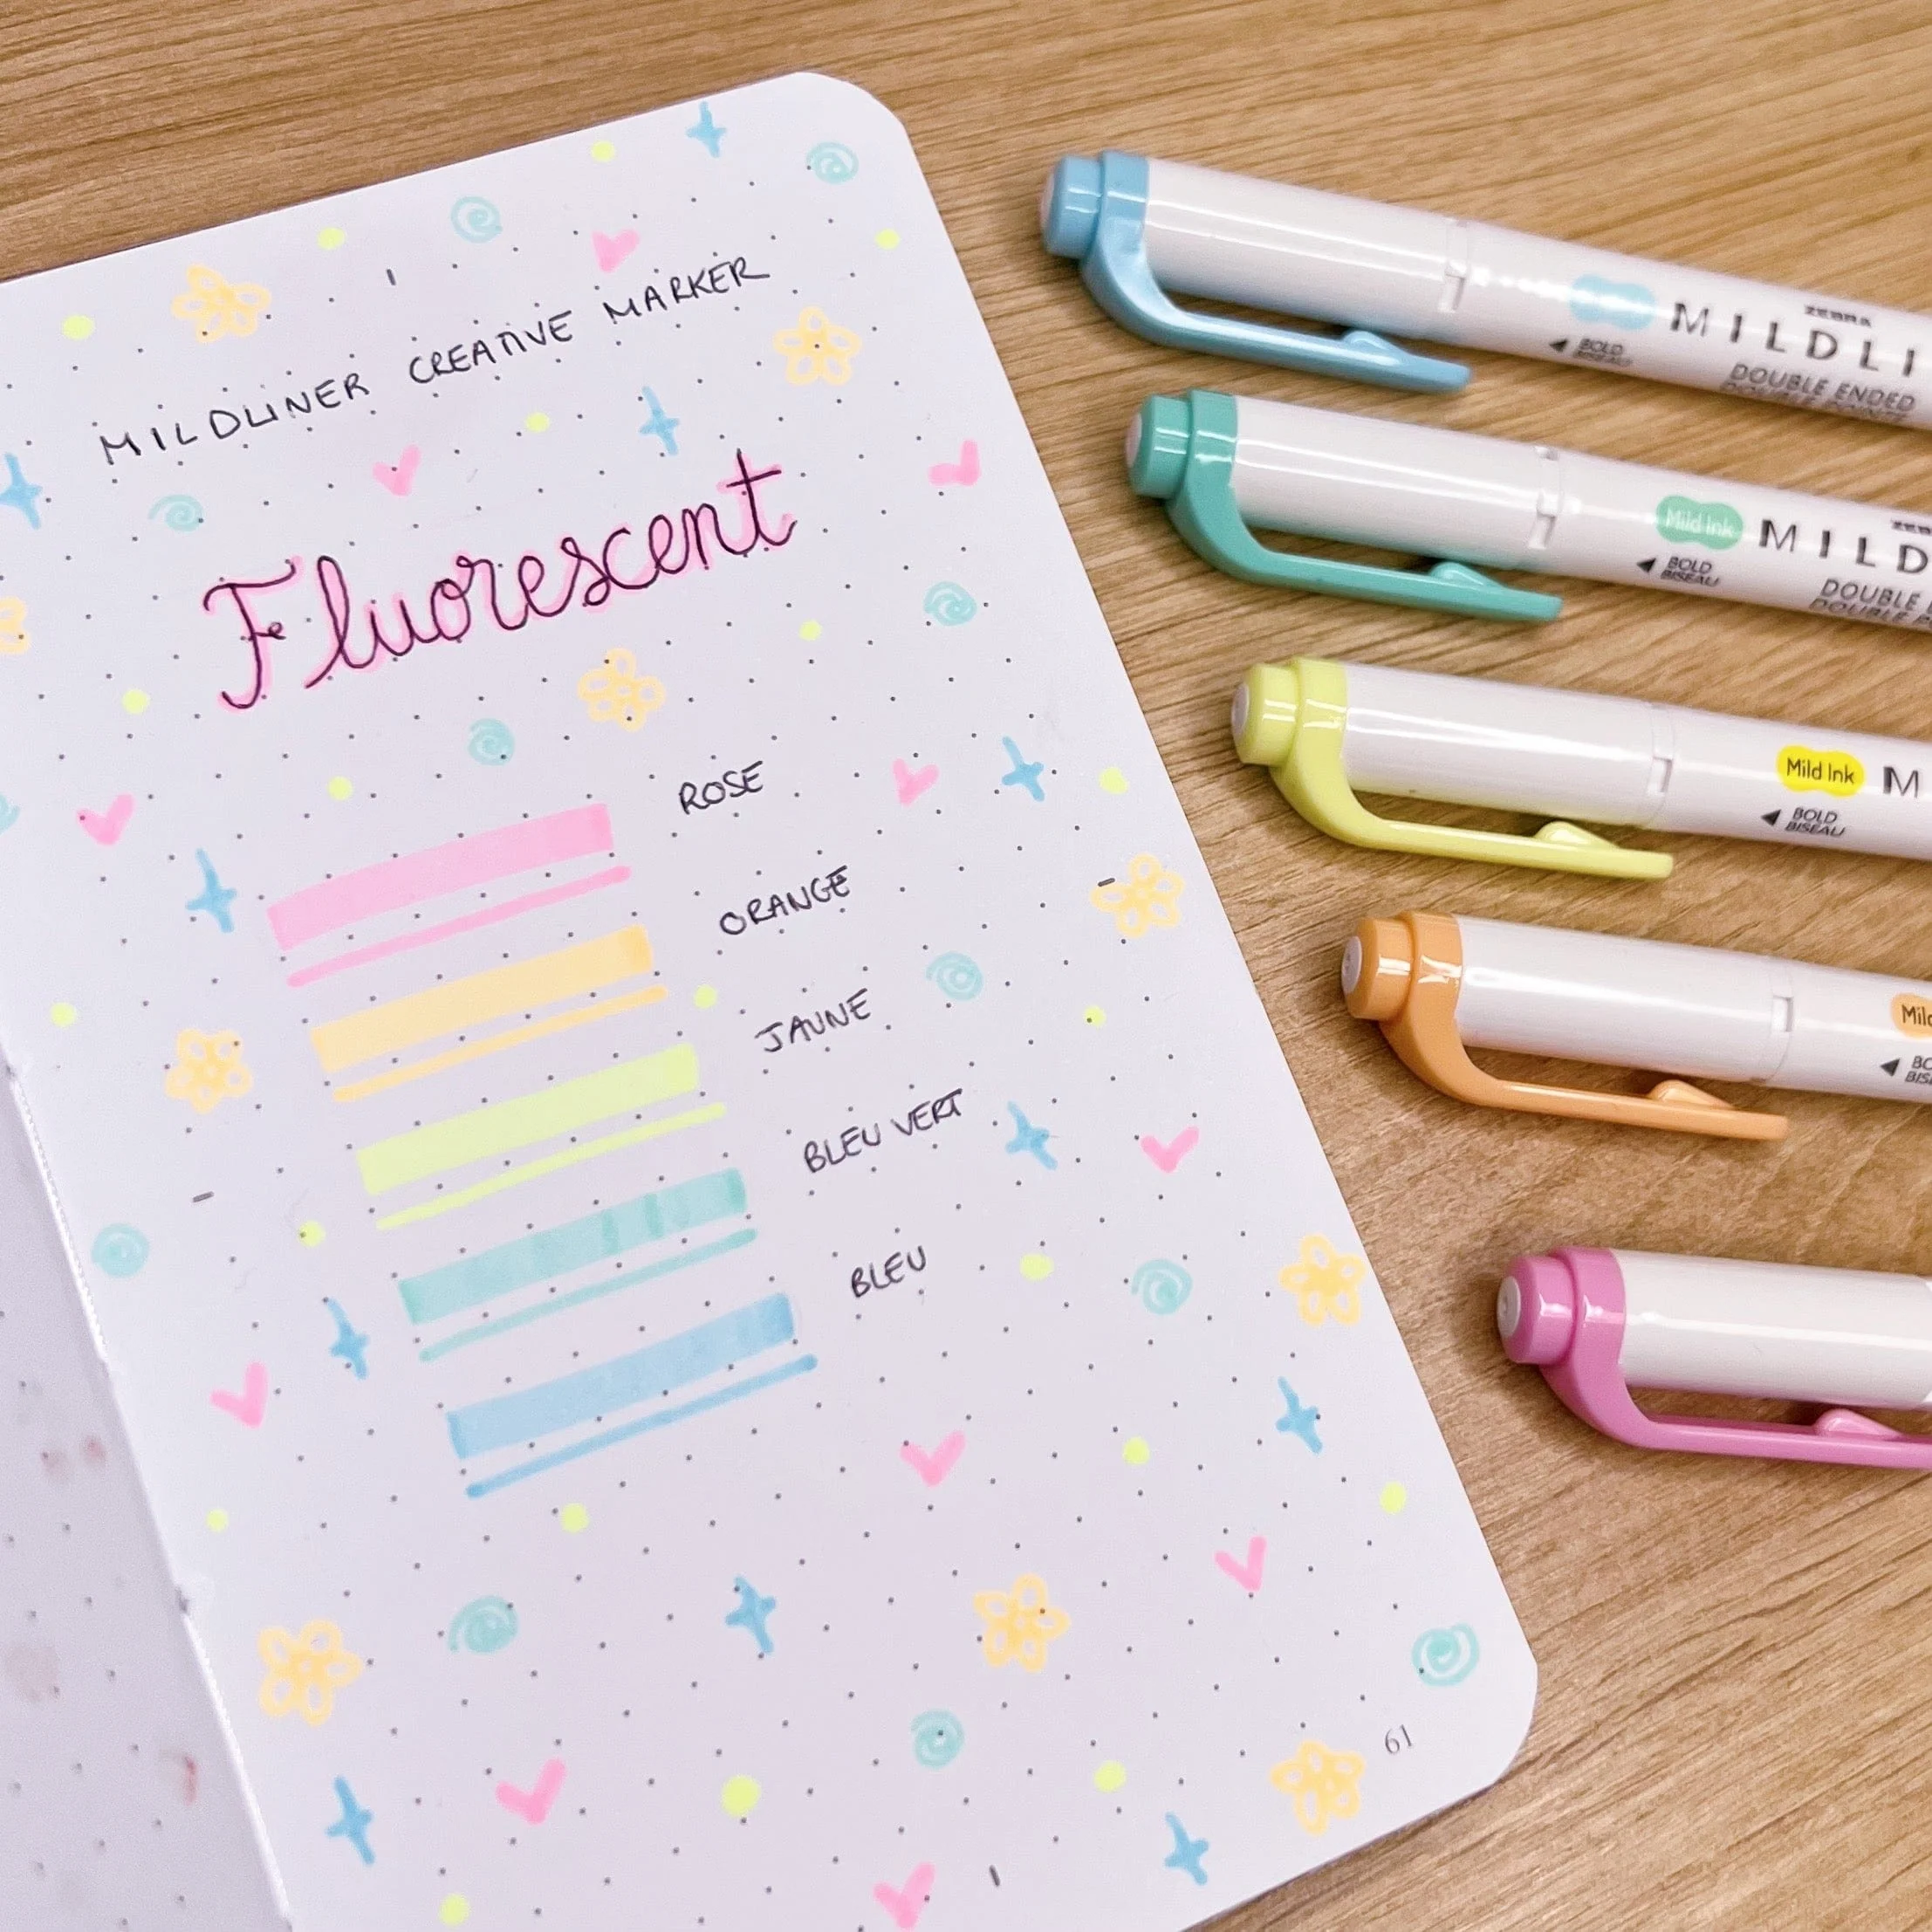 MILDLINER CREATIVE MARKER
Fluorescent
ROSE
ORANGE
JAUNE
BLEU VERT
BLEU
61
ZEBRA
MILDLI
BOLD
BISEAU
DOUBLE ENDED
Mild Ink
MILD
BOLD
BISEAU
DOUBLE
Mild Ink
M
BOLD
BISEAU
Mild
BO
BIS